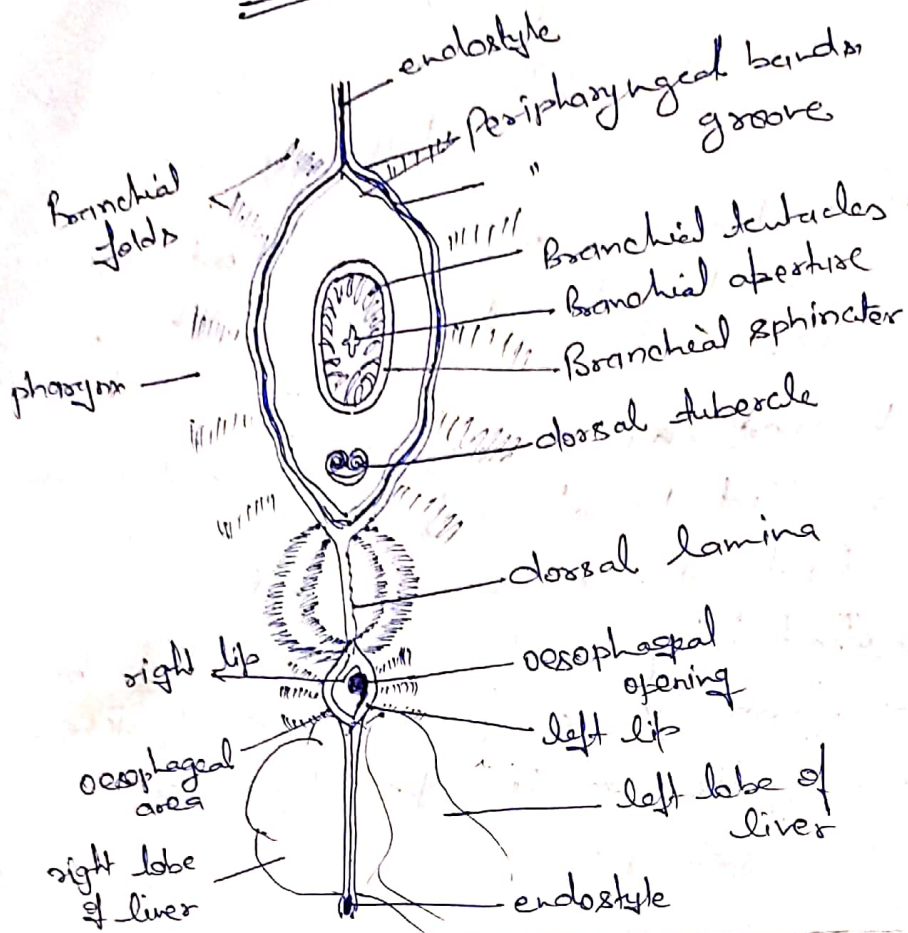 endostyle
Peripharyngeal bands,
groove
"
Branchial
folds
Branchial tentacles
Branchial aperture
Branchial sphincter
pharynx
dorsal tubercle
dorsal lamina
right lip
oesophageal
opening
left lip
oesophageal
area
left lobe of
liver
right lobe
of liver
endostyle